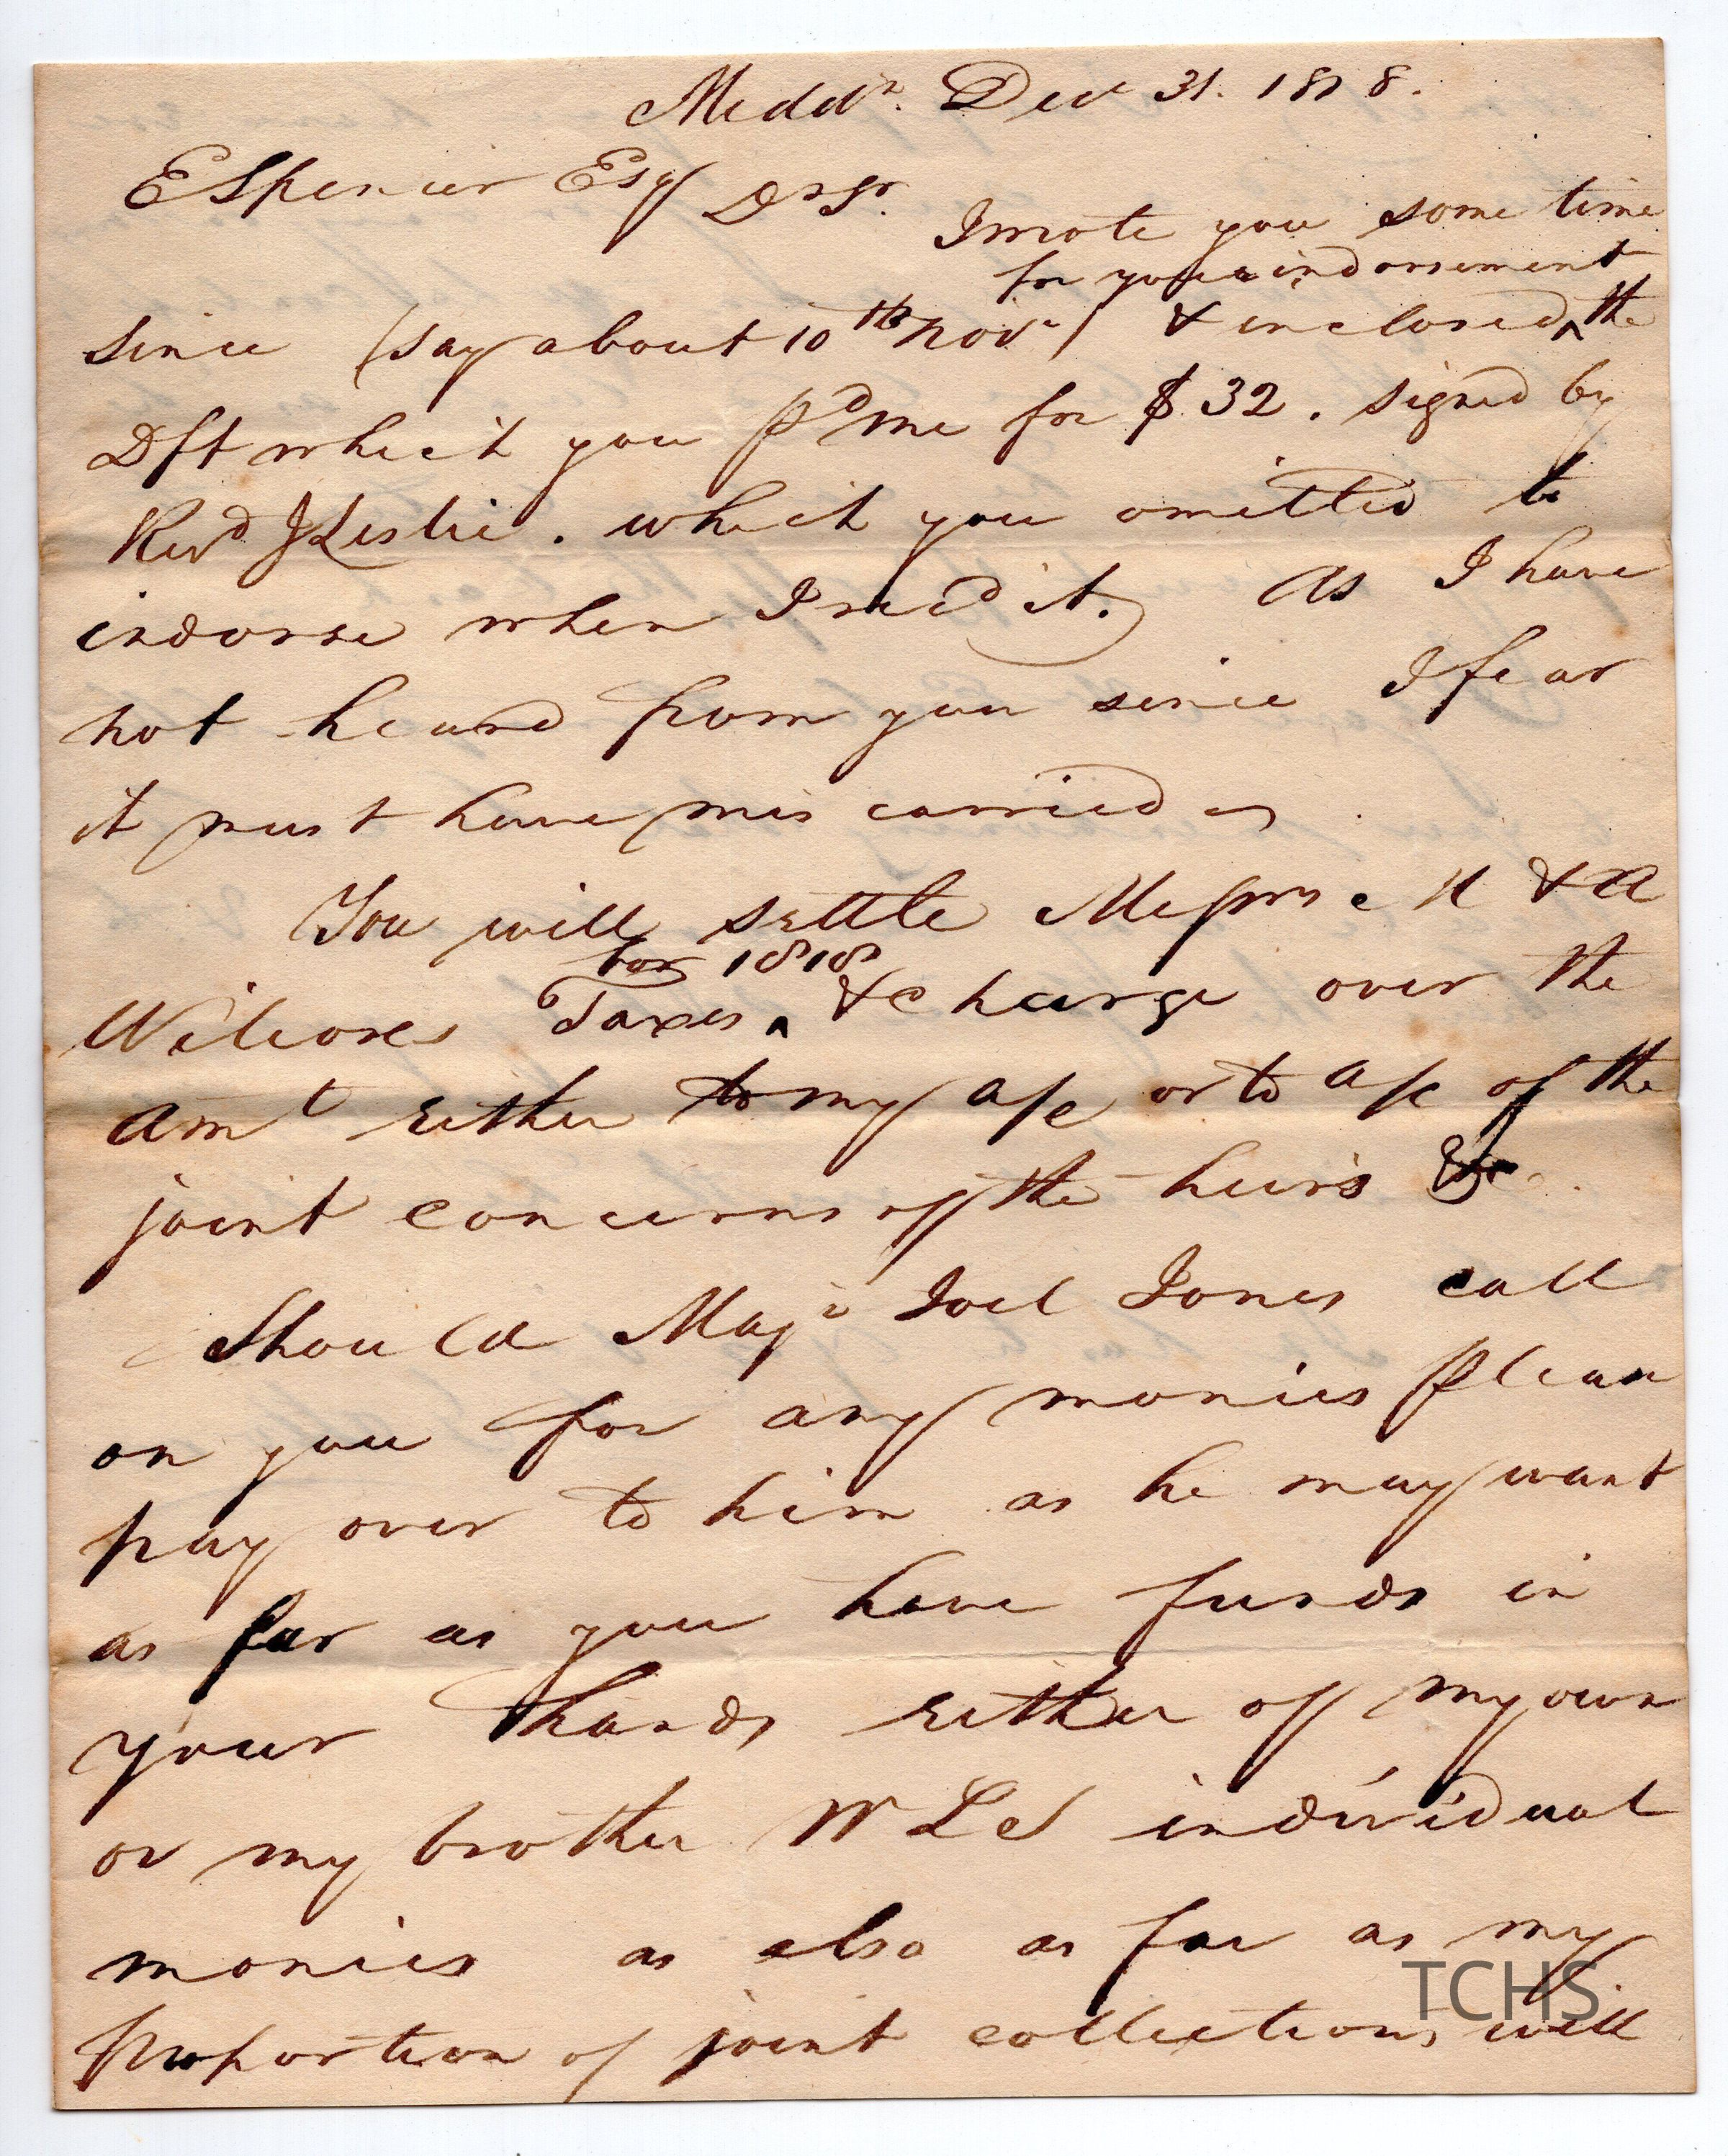 Middn. Decr 31. 1818.
E Spencer Esq Dr Sr.
I wrote you some time
for your indorsement
since (say about 10th Novr) & inclosed ^ the
Dft which you pd me for $32. signed by
Revd J Leslie. which you omitted to
indorse when I recd it. As I have
not heard from you since I fear
it must have mis carried
You will settle Messrs N & A
for 1818
Wilcoxes Taxes ^ & charge over the
Amt either to my a/c or to a/c of the
joint concerns of the heirs
Should Majr Joel Jones call
on you for any monies please
pay over to him as he may want
as far as you have funds in
your hands either of my own
or my brother W L S individual
monies as also as far as my
proportion of joint collections will
TCHS